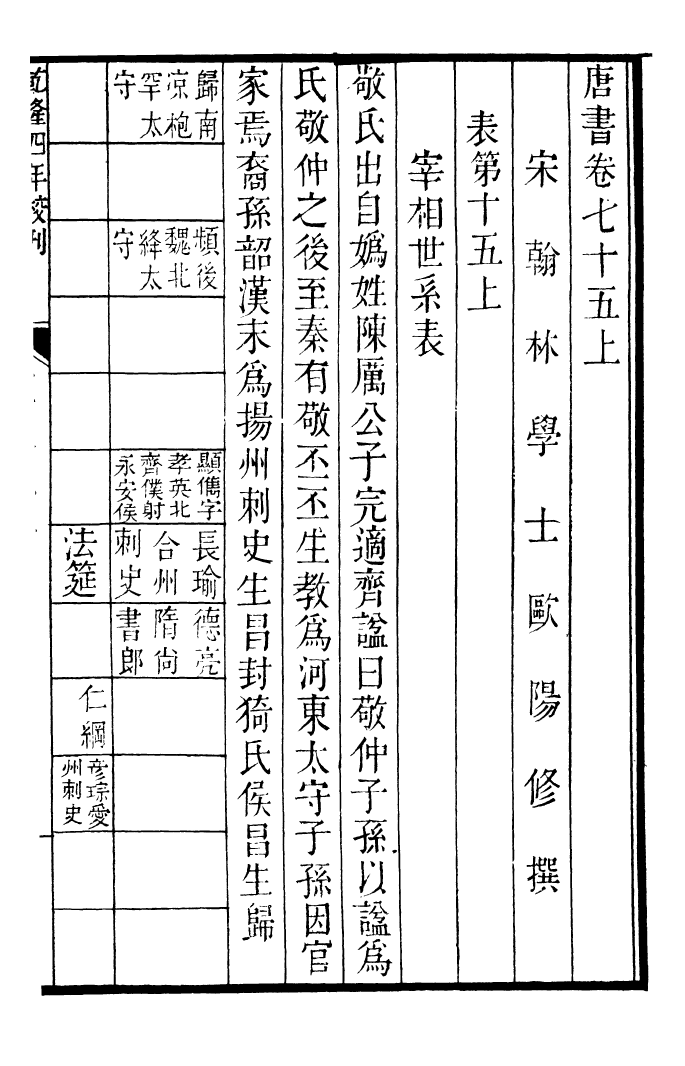 唐書卷七十五上
宋翰林學士歐陽修撰
表第十五上
宰相世系表
敬氏出自嬀姓陳厲公子完適齊諡曰敬仲子孫以諡爲
氏敬仲之後至秦有敬丕丕生教爲河東太守子孫因官
家焉裔孫韶漢末爲揚州刺史生昌封猗氏侯昌生歸
歸南
涼枹
罕太
守
頻後
魏北
絳太
守
顯儁字
孝英北
齊僕射
永安侯
長瑜
合州
刺史
德亮
隋尚
書郎
法筵
仁綱
彥琮愛
州刺史
乾隆四年校刊